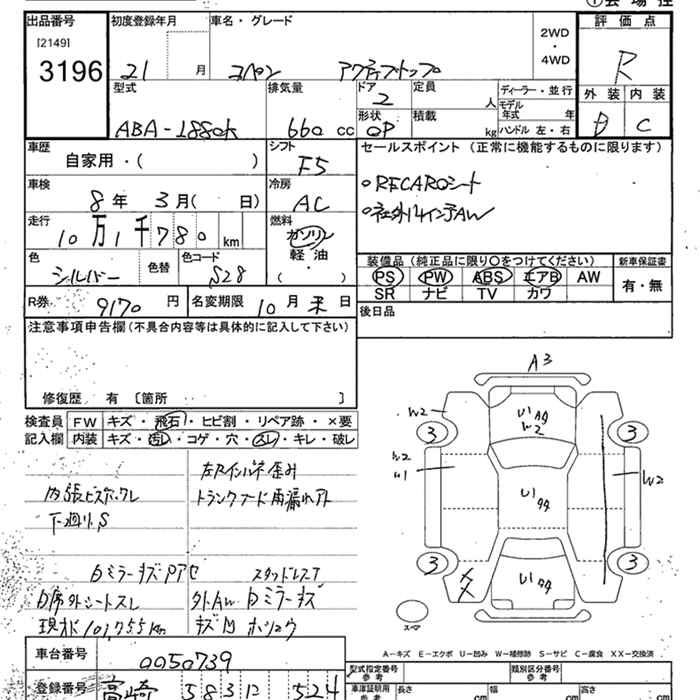 ①会場控
出品番号 初度登録年月 車名・グレード 2WD ・ 4WD 評価点
[2149]
3196 21 月 コペン アクティブトップ R
型式 排気量 ドア 2 定員 人 ディーラー・並行 外装 内装
モデル年式 年
ABA-L880K 660 cc 形状 OP 積載 kg ハンドル 左・右 D C
車歴 自家用・( ) シフト F5 セールスポイント(正常に機能するものに限ります)
車検 8年 3月( 日) 冷房 AC
。RECAROシート
。社外14インチAW
走行 10万1千780 km 燃料 ガソリン 軽油 ・ ( )
色 シルバー 色替 色コード S28
装備品(純正品に限り〇をつけてください) 新車保証書
PS PW ABS エアB AW 有・無
SR ナビ TV カワ
R券 9170 円 名変期限 10月末日
後日品
注意事項申告欄(不具合内容等は具体的に記入して下さい)
修復歴 有 〔箇所 〕
検査員記入欄 FW キズ・飛石・ヒビ割・リペア跡・×要
内装 キズ・汚い・コゲ・穴・スレ・キレ・破レ
左Rインパネ歪み
内張ビス欠品
トランクフード雨漏れアト
下廻りS
Dミラーキズ Pアセ スタッドレスT
D席外シートスレ 外AW Dミラーキズ
現状 101,755km
A3
W2 U1 タタ W2
3 3
W2 W1 U1 タタ W2
3 3
XX U1 タタ
スペア
A-キズ E-エクボ U-凹み W-補修跡 S-サビ C-腐食 XX-交換済
車台番号 0050739
登録番号 高崎 583 ヒ 524
型式指定番号 参考 類別区分番号 参考
車庫証明用 参考 長さ cm 幅 cm 高さ cm